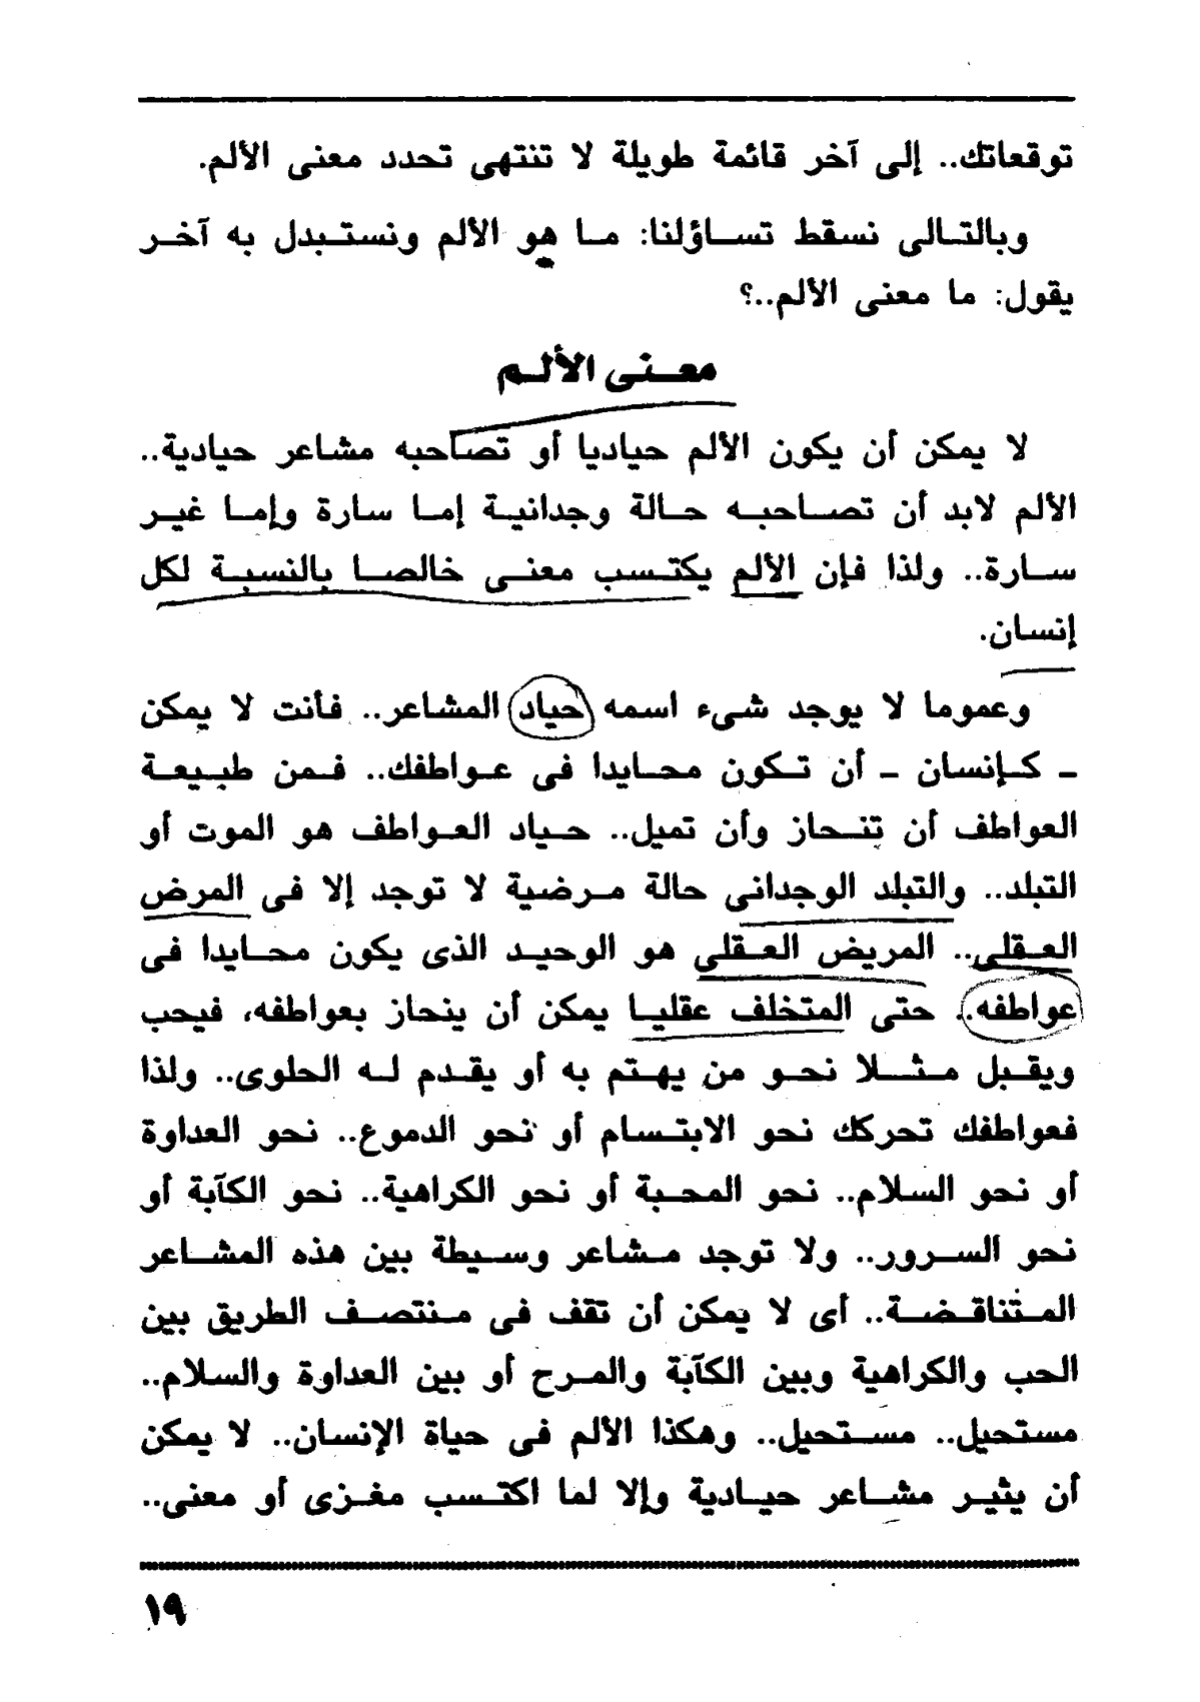 توقعاتك.. إلى آخر قائمة طويلة لا تنتهى تحدد معنى الألم.
وبالتالى نسقط تساؤلنا: ما هو الألم ونستبدل به آخر
يقول: ما معنى الألم..؟
معنى الألم
لا يمكن أن يكون الألم حياديا أو تصاحبه مشاعر حيادية..
الألم لابد أن تصاحبه حالة وجدانية إما سارة وإما غير
سارة.. ولذا فإن الألم يكتسب معنى خالصا بالنسبة لكل
إنسان.
وعموما لا يوجد شىء اسمه حياد المشاعر.. فأنت لا يمكن
ـ كإنسان ـ أن تكون محايدا فى عواطفك.. فمن طبيعة
العواطف أن تنحاز وأن تميل.. حياد العواطف هو الموت أو
التبلد.. والتبلد الوجدانى حالة مرضية لا توجد إلا فى المرض
العقلى.. المريض العقلى هو الوحيد الذى يكون محايدا فى
عواطفه.. حتى المتخلف عقليا يمكن أن ينحاز بعواطفه، فيحب
ويقبل مثلا نحو من يهتم به أو يقدم له الحلوى.. ولذا
فعواطفك تحركك نحو الابتسام أو نحو الدموع.. نحو العداوة
أو نحو السلام.. نحو المحبة أو نحو الكراهية.. نحو الكآبة أو
نحو السرور.. ولا توجد مشاعر وسيطة بين هذه المشاعر
المتناقضة.. أى لا يمكن أن تقف فى منتصف الطريق بين
الحب والكراهية وبين الكآبة والمرح أو بين العداوة والسلام..
مستحيل.. مستحيل.. وهكذا الألم فى حياة الإنسان.. لا يمكن
أن يثير مشاعر حيادية وإلا لما اكتسب مغزى أو معنى..
١٩